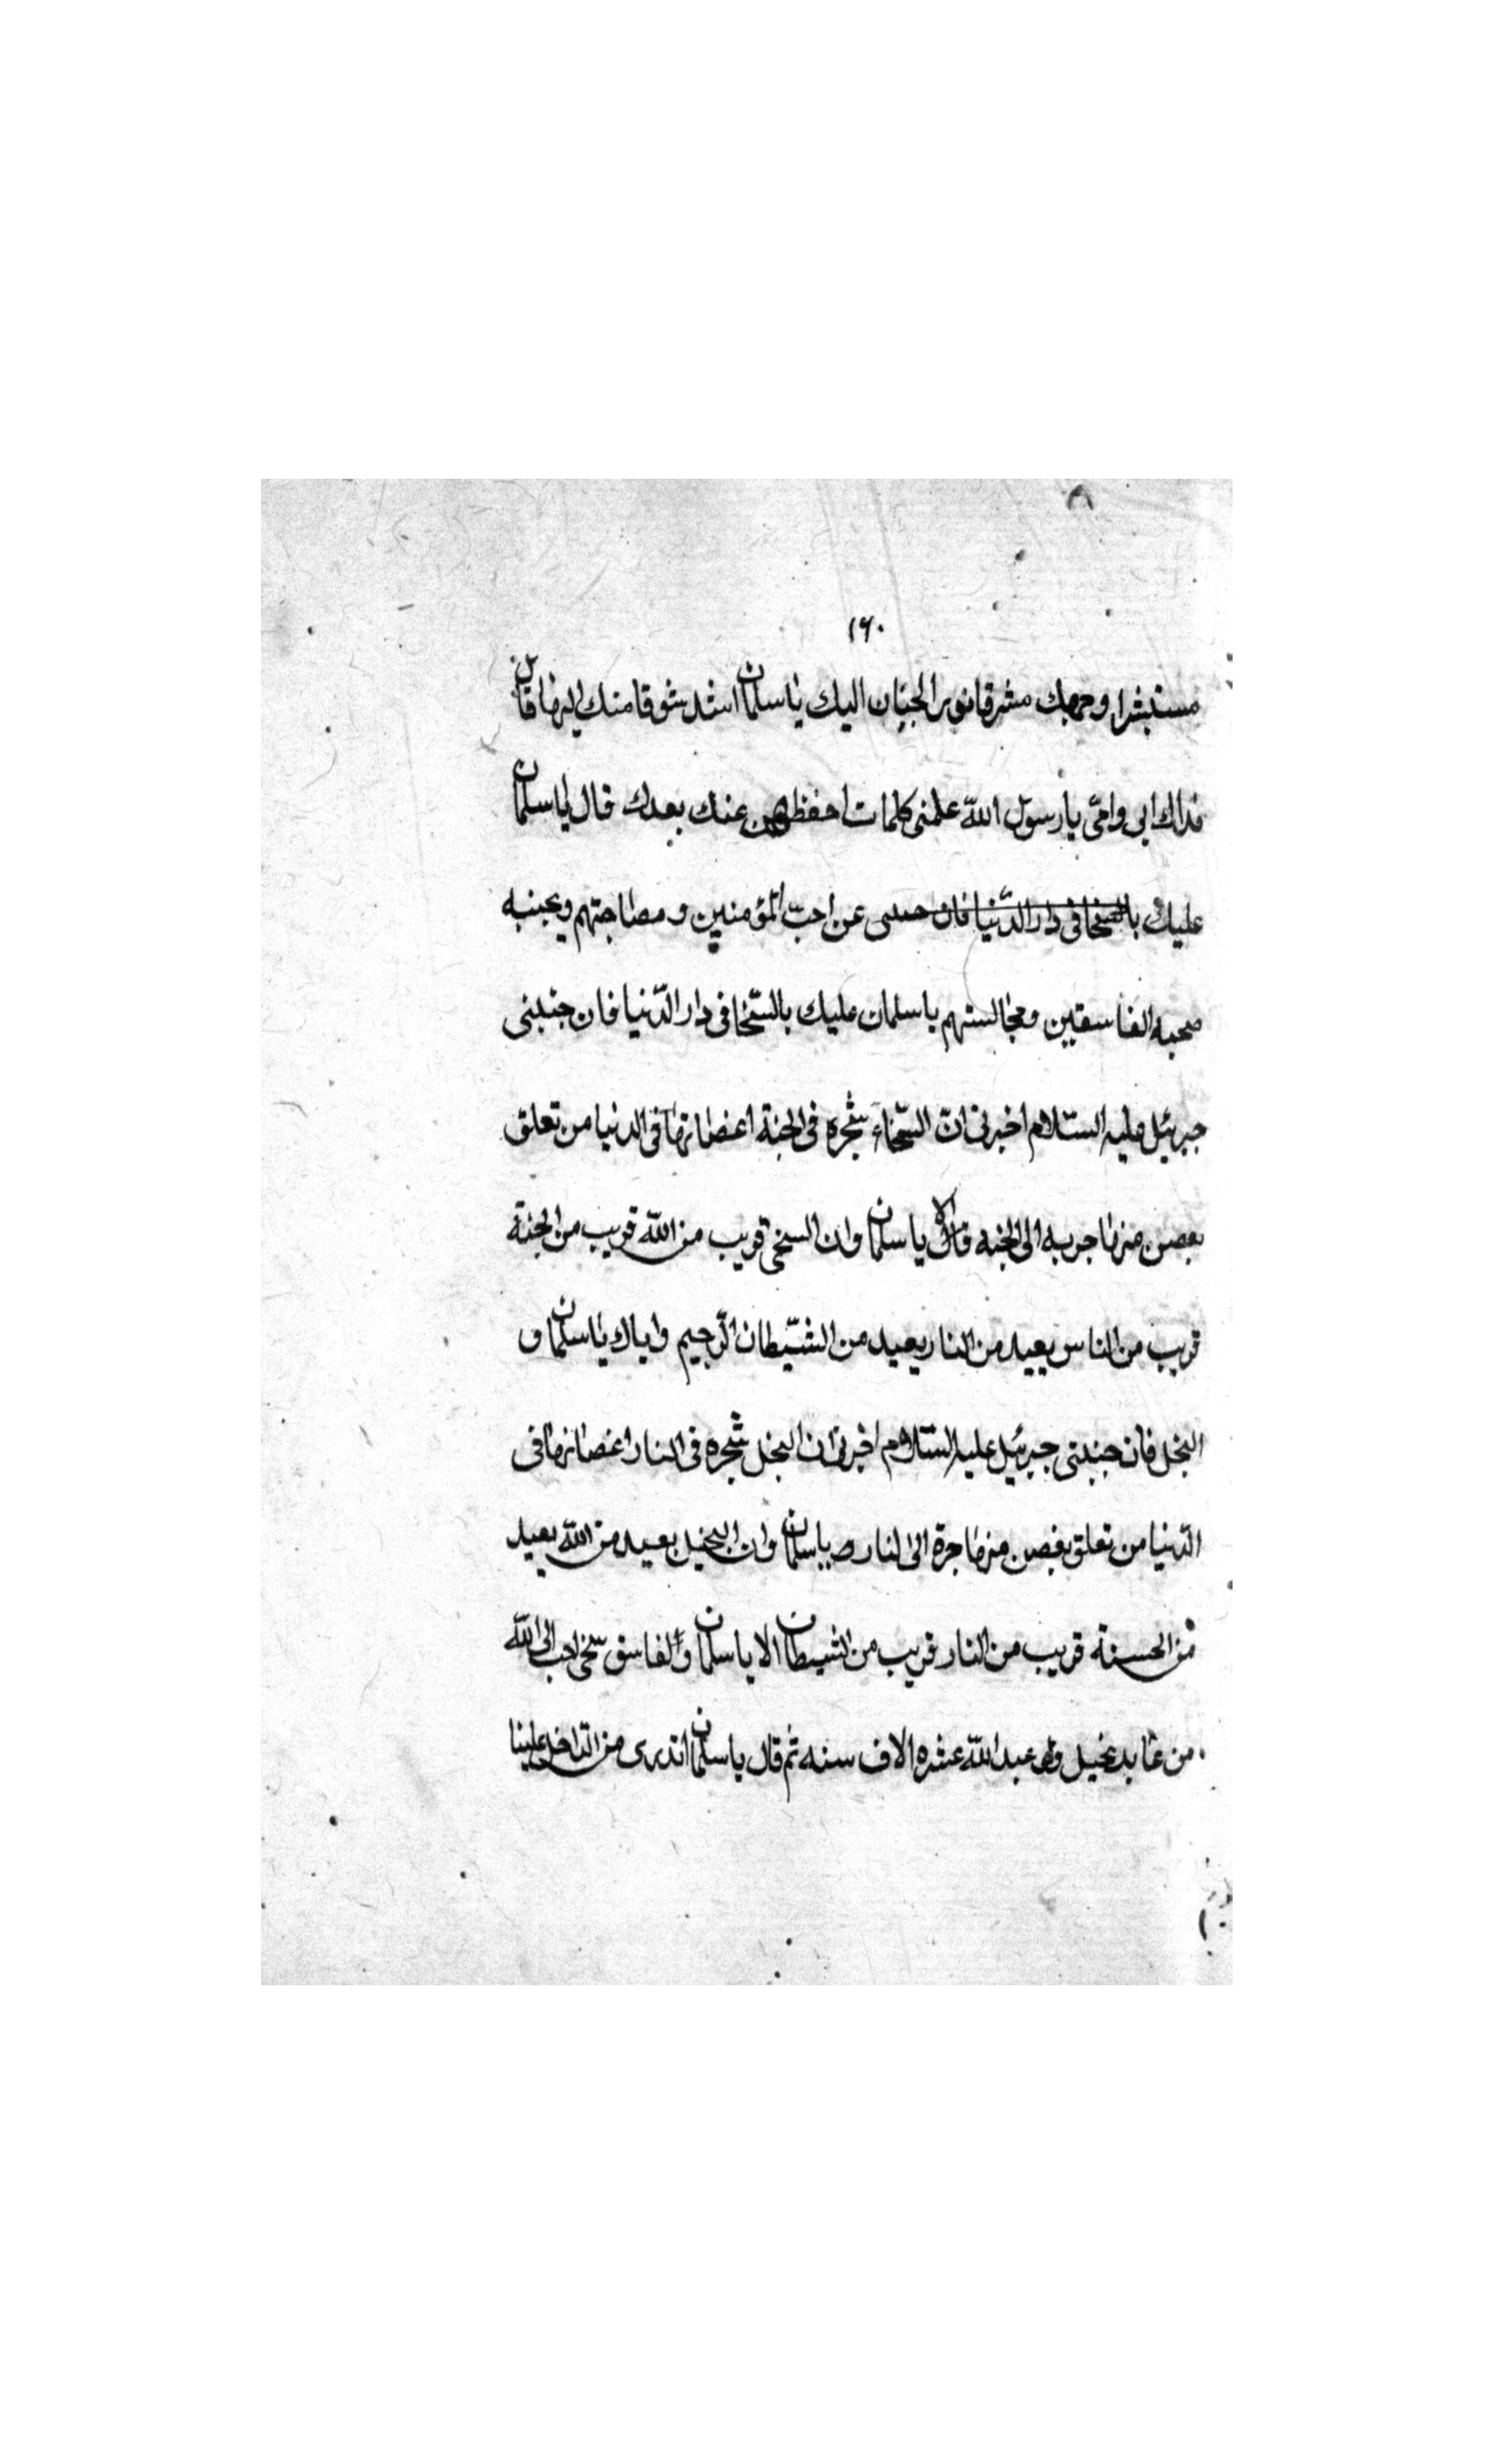 ١٦٠
مستبشرا وجهك مشرقا نور الجنان اليك يا سلمان اشد شوقا منك اليها قال
فداك ابى وامّى يا رسول اللّه علمنى كلمات احفظهن عنك بعدك قال يا سلمان
عليك بالسخا فى دار الدّنيا فان حبيبى عن احبّ المؤمنين و مصاحبتهم ويجنبه
صحبه الفاسقين ومجالستهم يا سلمان عليك بالسّخا فى دار الدّنيا فان حبيبى
جبرئيل عليه السّلام اخبرنى انّ السّخاء شجره فى الجنة اغصانها فى الدنيا من تعلق
بغصن منها جربه الى الجنه قال الا يا سلمان وان السخى قريب من اللّه قريب من الجنة
قريب من الناس بعيد من النار بعيد من الشّيطان الرّجيم واياك يا سلمان و
البخل فان حبيبى جبرئيل عليه السّلام اخبرنى ان البخل شجره فى النار اغصانها فى
الدّنيا من تعلق بغصن منها جرة الى النار يا سلمان وان البخيل بعيد من اللّه بعيد
من الحسنة قريب من النار قريب من الشيطان الا يا سلمان والفاسق سخى احب الى اللّه
من عابد بخيل ولو عبد اللّه عشره الاف سنه ثم قال يا سلمان اتدرى من الداخل علينا